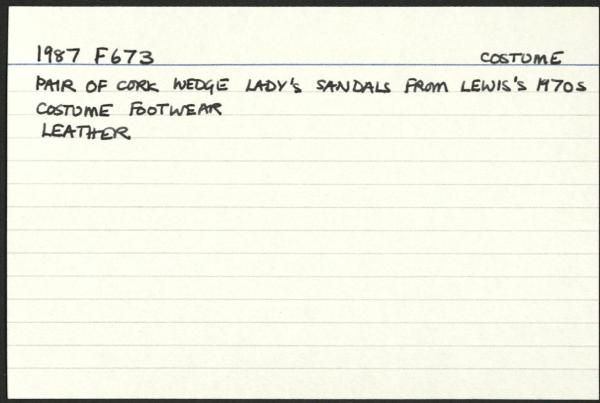 1987 F673 COSTUME
PAIR OF CORK WEDGE LADY'S SANDALS FROM LEWIS'S 1970S
COSTUME FOOTWEAR
LEATHER